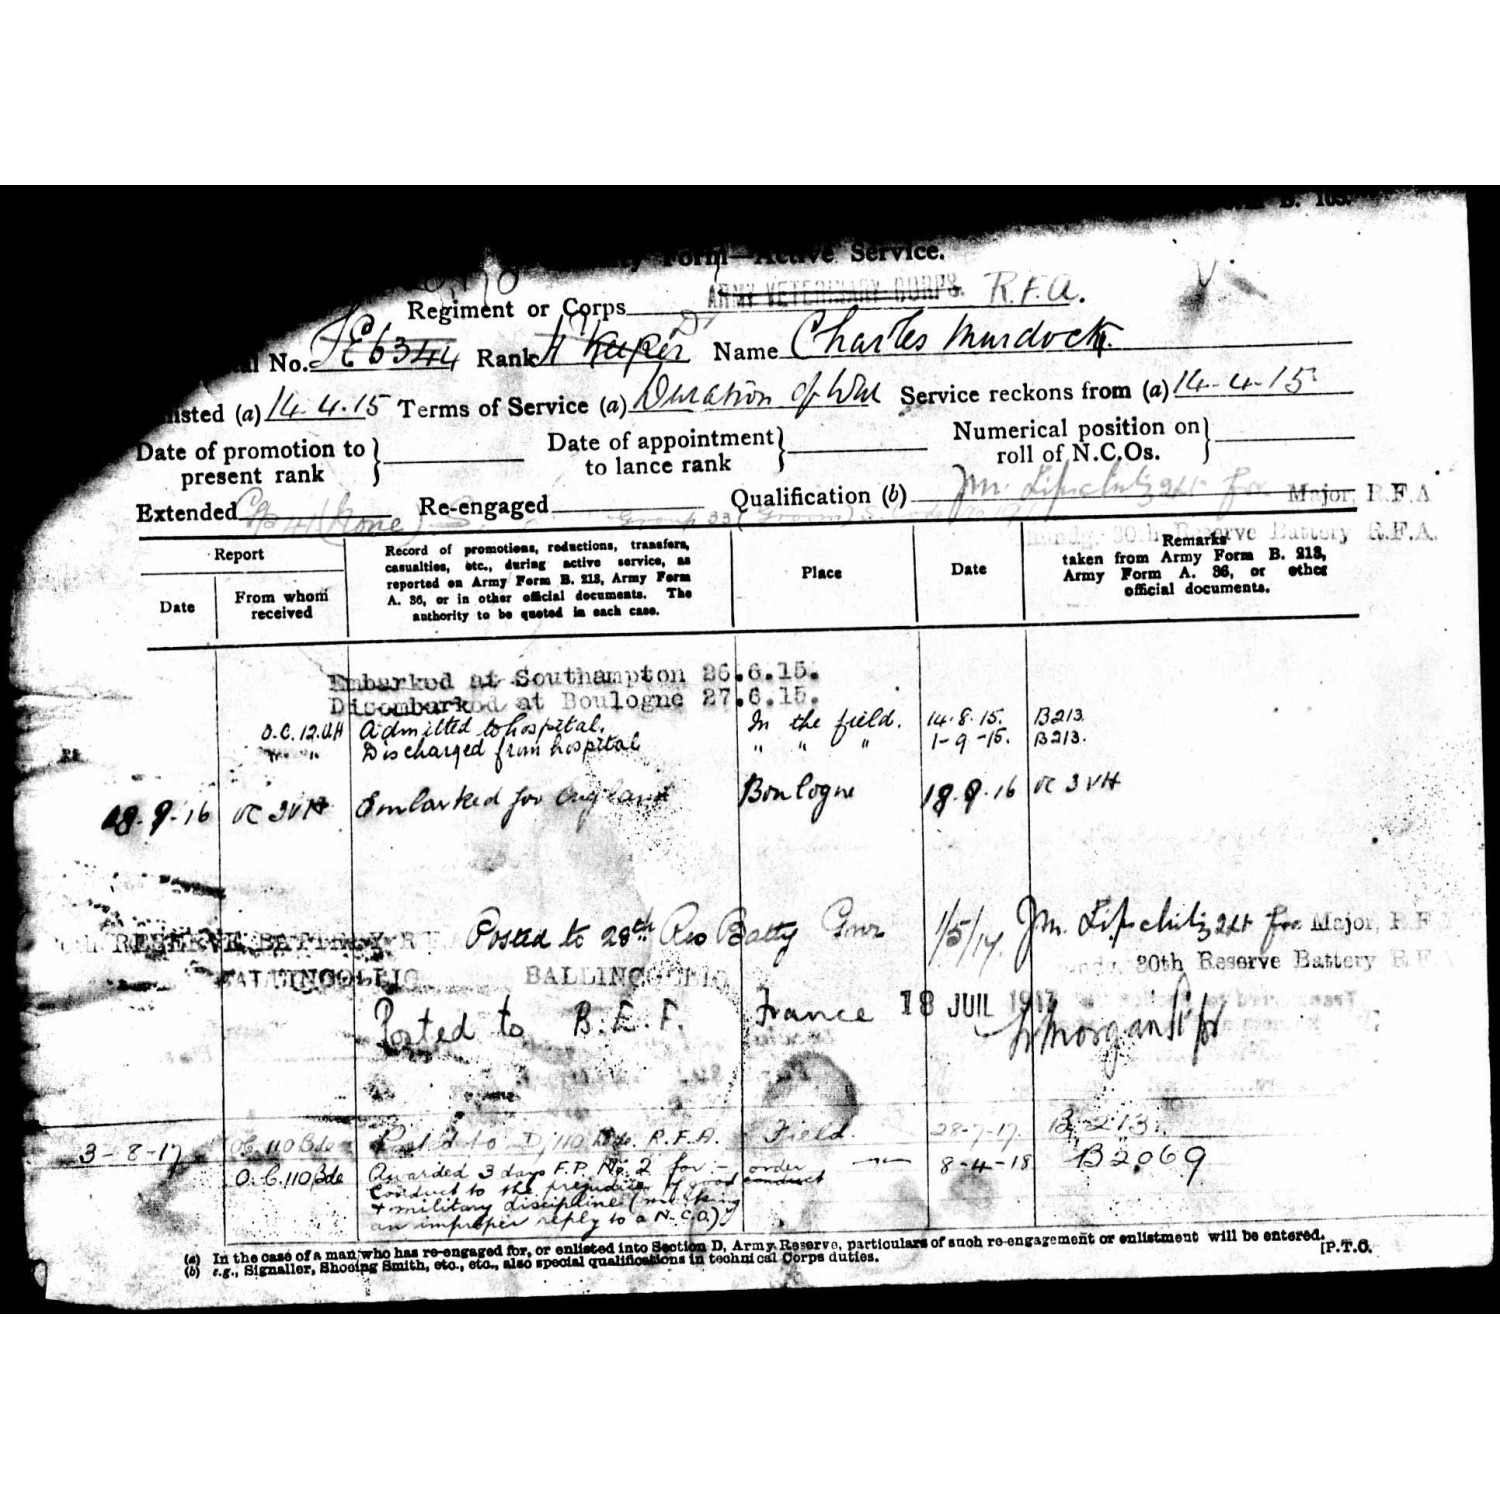 Form—Active Service.
Regiment or Corps ARMY VETERINARY CORPS. R.F.A.
No. SE6344 Rank Name Charles Murdock
listed (a) 14.4.15 Terms of Service (a) Duration of War Service reckons from (a) 14-4-15
Date of promotion to present rank } Date of appointment to lance rank } Numerical position on roll of N.C.Os. }
Extended Re-engaged Qualification (b) Jm. Lipchitz 2Lt for Major, R.F.A
30th Reserve Battery R.F.A.
Report
Date
From whom received
Record of promotions, reductions, transfers, casualties, etc., during active service, as reported on Army Form B. 213, Army Form A. 36, or in other official documents. The authority to be quoted in each case.
Place
Date
Remarks taken from Army Form B. 213, Army Form A. 36, or other official documents.
Embarked at Southampton 26.6.15.
Disembarked at Boulogne 27.6.15.
O.C. 12.V.H Admitted to hospital. In the field. 14.8.15. B213.
" " Discharged from hospital " " " 1-9-15. B213.
18.9.16 OC 3VH Embarked for England Boulogne 18.9.16 OC 3VH
RESERVE BATTERY R Posted to 28th Res Batty 1/5/17 Jm. Lipchitz 2Lt for Major, R.F
BALLINCOLLIG BALLINCOLLIG 30th Reserve Battery R F A
Posted to B.E.F. France 18 JUIL 1917
3-8-17 OC.110 Bde Posted to D/110 Bde. R.F.A. Field. 28-7-17. B.213.
O.C.110 Bde Awarded 3 days F.P. No. 2 for:- 8-4-18 B2069
Conduct to the prejudice of good order
& military discipline (making
an improper reply to a N.C.O.)
(a) In the case of a man who has re-engaged for, or enlisted into Section D, Army Reserve, particulars of such re-engagement or enlistment will be entered.
(b) e.g., Signaller, Shoeing Smith, etc., etc., also special qualifications in technical Corps duties. [P.T.O.